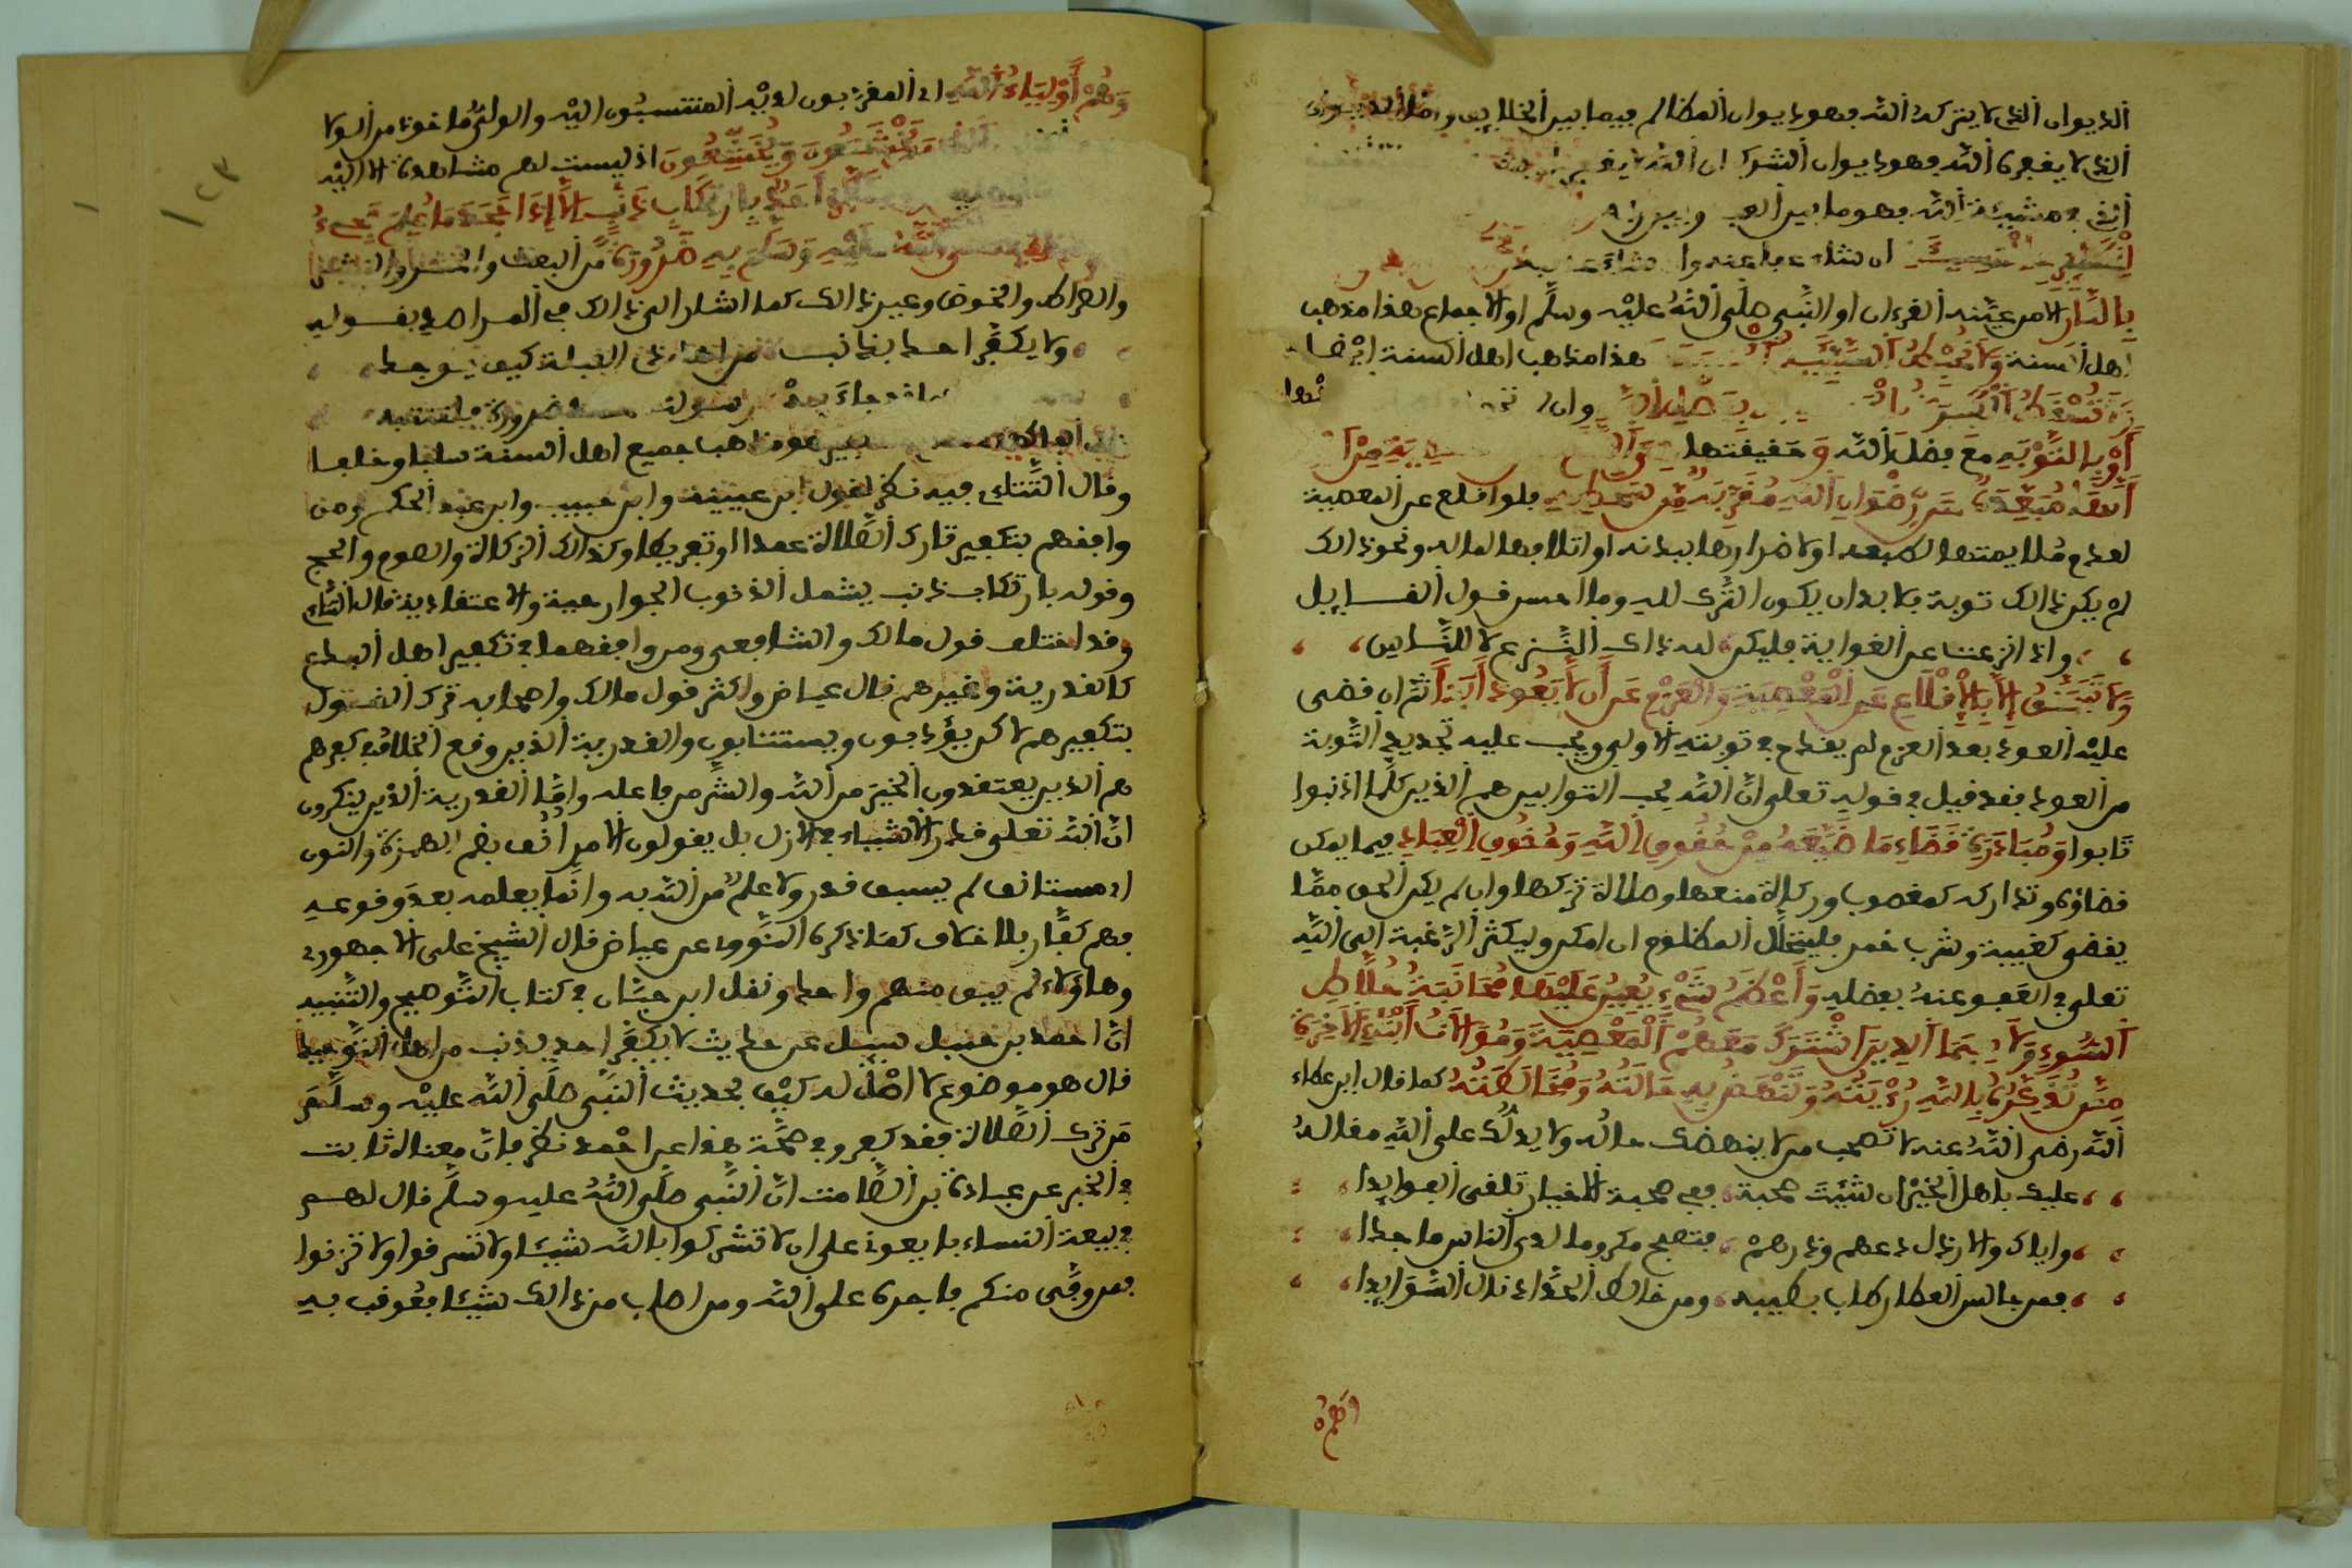 الديوان الذي لا يتركه الله فهو ديوان المظالم فيما بين الخلايق واما الديوان
الذي لا يغفره الله فهو ديوان الشرك ان الله لا يغفر
الذي في مشيئة الله فهو ما بين العبد وبين ربه
ان شاء عفا عنه وان شاء عذبه
بالنار الا من عينه القرءان او النبي صلى الله عليه وسلم او الاجماع هذا مذهب
اهل السنة ولا تحبط السيئة هذا مذهب اهل السنة ايضا
وان
او بالتوبة مع فضل الله وحقيقتها
مبعدة عن رضوان الله مقربة من سخطه فلو اقلع عن المعصية
لعدم ملايمتها لطبعه او لاضرارها ببدنه او اتلافها لماله ونحو ذالك
لم يكن ذالك توبة فلا بد ان يكون الترك لله وما احسن قول القسايل
واذا انزعت عن الغواية فليكن لله ذاك النزع لا للناس
ولا تتحقق الا بالاقلاع عن المعصية والعزم على ان لا يعود ابدا ثم ان قضى
عليه العود بعد العزم لم يقدح في توبته الاولى ويجب عليه تجديد التوبة
من العود فقد قيل في قوله تعلى ان الله يحب التوابين هم الذين كلما اذنبوا
تابوا ومبادرة قضاء ما ضيعه من حقوق الله وحقوق العباد فيما يمكن
قضاؤه وتداركه كمغصوب وزكاة منعها وصلاة تركها وان لم يكن الحق مما
يقضى كغيبة وشرب خمر فليتحلل المظلوم ان امكن وليكثر الرغبة الى الله
تعلى في العفو عنه بفضله واعظم شيء يعين عليها مجانبة خلاط
السوء ولا سيما الذين اشترك معهم المعصية ومؤالفات ابناء الاخرة
ممن تذكره بالله رؤيته وتنهض به حالته ومخالطته كما قال ابن عطاء
الله رضي الله عنه لا تصحب من لا ينهضك حاله ولا يدلك على الله مقاله
عليك باهل الخير ان شئت صحبة ففي صحبة الاخيار تلقى الفوايدا
واياك والارذال دعهم وذرهم فتصبح مكروما لدى الناس ماجدا
فمن جالس العطار طاب بطيبه ومن خالط الحداد نال السوايدا
وهم
وهم اولياء الله اي المقربون لديه المنتسبون اليه والولي ماخوذ من الولا
اذ ليست لهم مشاهدة الا اليه
بارتكاب ذنب الا اذا جحد ما علم مجيء
صلى الله عليه وسلم به ضرورة من البعث والحشر والنشر
والصراط والحوض وغير ذالك كما اشار الى ذالك في المراصد بقوله
ولا يكفر احد بذانب من اهل ذي القبلة كيف يوجد
جاء به رسولنا ضرورة فلتنتبه
هو مذهب جميع اهل السنة سلفا وخلفا
وقال التتاي فيه نظر لقول ابن عيينة وابن حبيب وابن عبد الحكم ومن
وافقهم بتكفير تارك الصلاة عمدا او تفريطا وكذالك الزكاة والصوم والحج
وقوله بارتكاب ذنب يشمل الذنوب الجوارحية والاعتقادية قال التتاي
وقد اختلف قول مالك والشافعي ومن وافقهما في تكفير اهل البدع
كالقدرية وغيرهم قال عياض واكثر قول مالك واصحابه ترك القول
بتكفيرهم لاكن يؤدبون ويستتابون والقدرية الذين وقع الخلاف في كفرهم
هم الذين يعتقدون الخير من الله والشر من فاعله واما القدرية الذين ينكرون
ان الله تعلى قدر الاشياء في الازل بل يقولون الامر انف بضم الهمزة والنون
اي مستانف لم يسبق قدر ولا علم من الله به وانما يعلمه بعد وقوعه
فهم كفار بلا خلاف كما ذكره النووي عن عياض قال الشيخ علي الاجهوري
وهاؤلاء لم يبق منهم واحد ونقل ابن حبان في كتاب التوضيح والتنبيه
ان احمد بن حنبل سيل عن حديث لا يكفر احد بذنب من اهل التوحيد
قال هو موضوع لا اصل له كيف بحديث النبي صلى الله عليه وسلم
من ترك الصلاة فقد كفر وفي صحة هذا عن احمد نظر فان معناه ثابت
في الخبر عن عبادة بن الصامت ان النبي صلى الله عليه وسلم قال لهم
في بيعة النساء بايعوني على ان لا تشركوا بالله شيئا ولا تسرقوا ولا تزنوا
فمن وفى منكم فاجره على الله ومن اصاب من ذالك شيئا فعوقب به